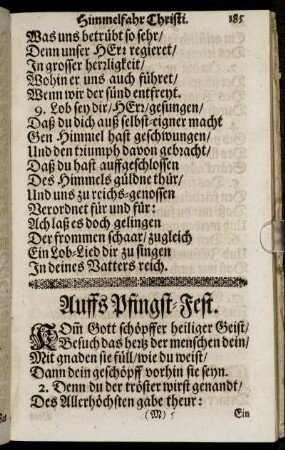 Himmelfahr Christi. 185
Was uns betrübt so sehr/
Denn unser HErꝛ regieret/
In grosser herꝛligkeit/
Wohin er uns auch führet/
Wenn wir der sünd entfreyt.
9. Lob sey dir/HErꝛ/gesungen/
Daß du dich auß selbst-eigner macht
Gen Himmel hast geschwungen/
Und den tꝛiumph davon gebꝛacht/
Daß du hast auffgeschlossen
Des Himmels güldne thür/
Und uns zu reichs-genossen
Verordnet für und für:
Ach laß es doch gelingen
Der frommen schaar/zugleich
Ein Lob-Lied dir zu singen
In deines Vatters reich.
Auffs Pfingst-Fest.
KOm̃ Gott schöpffer heiliger Geist/
Besuch das hertz der menschen dein/
Mit gnaden sie füll/wie du weist/
Dann dein geschöpff vorhin sie seyn.
2. Denn du der tröster wirst genandt/
Des Allerhöchsten gabe theur:
(M) 5 Ein